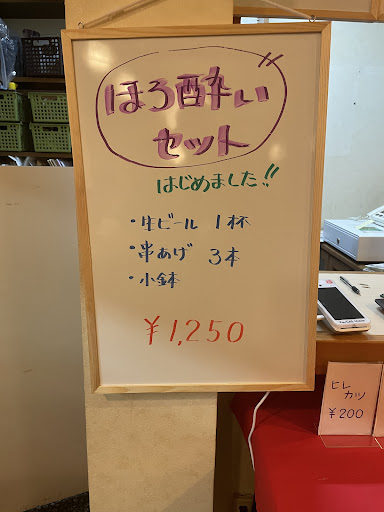 ほろ酔い!!
セット
はじめました!!
・生ビール 1杯
・串あげ 3本
・小鉢
¥1,250
ヒレ
カツ
¥200